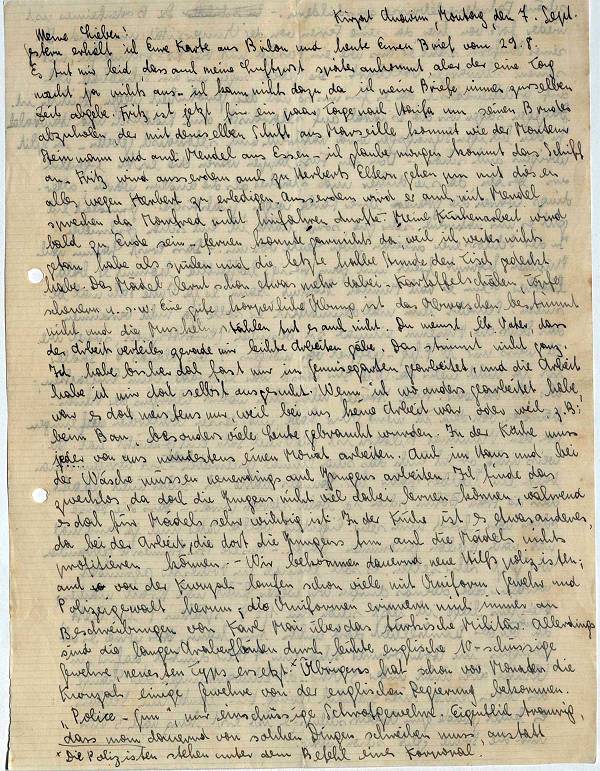 Kirjat Anavim, Montag, den 7. Sept.
Meine Lieben!
gestern erhielt ich Eure Karte aus Brilon und heute Euren Brief vom 29.8.
Es tut mir leid, dass auch meine Luftpost später ankommt aber der eine Tag
macht ja nichts aus – ich kann nichts dazu da ich meine Briefe immer zurselben
Zeit abgebe. Fritz ist jetzt für ein paar Tage nach Haifa um seinen Bruder
abzuholen, der mit demselben Schiff aus Marseille kommt wie der Monteur
Beinmann und auch Mendel aus Essen – ich glaube morgen kommt das Schiff
an. Fritz wird ausserdem auch zu Herberts Eltern gehen um mit diesen
alles wegen Herbert zu erledigen. Ausserdem wird er auch mit Mendel
sprechen da Manfred nicht durfte. Meine Küchenarbeit wird
bald zu Ende sein – lernen konnte garnichts da, weil ich weiter nichts
getan habe als spülen und die letzte halbe Stunde den Tisch gedeckt
habe. Das Mädel lernt schon etwas mehr dabei – Kartoffelschälen, Töpfe
scheuern u. s. w. Eine gute körperliche Übung ist das Abwaschen bestimmt
nicht und die Muskeln stählen tut es auch nicht. Du meinst, lb. Vater, dass
der Arbeitsverteiler gerade mir leichte Arbeiten gäbe. Das stimmt nicht ganz.
Ich habe bisher doch fast nur im Gemüsegarten gearbeitet, und die Arbeit
habe ich mir doch selbst ausgesucht. Wenn ich wo anders gearbeitet habe,
war es doch meistens nur, weil bei uns keine Arbeit war, oder weil z. B.
beim Bau, besonders viele Leute gebraucht wurden. In der Küche muss
jeder von uns mindestens einen Monat arbeiten. Auch im Haus und bei
der Wäsche müssen neuerdings auch Jungens arbeiten. Ich finde das
zwecklos, da doch die Jungens nicht viel dabei lernen können, während
es doch für Mädels sehr wichtig ist. In der Küche ist es etwas anderes,
da bei der Arbeit, die dort die Jungens tun, auch die Mädels nichts
profitieren können. – Wir bekommen dauernd neue Hilfspolizisten;
auch von der Kwuzah laufen schon viele mit Uniform, Gewehr und
Polizeigewalt herum; die Uniformen erinnern mich immer an
Beschreibungen von Karl Mai über das türkische Militär. Allerdings
sind die langen Araberflinten durch leichte englische 10-schüssige
Gewehre, neuesten Typs ersetzt.* Übrigens hat schon vor Monaten die
Kwuzah einige Gewehre von der englischen Regierung bekommen.
„Police-Gun“, nur einschüssige Schrotgewehre. Eigentlich traurig,
dass man dauernd von solchen Dingen schreiben muss, anstatt
* Die Polizisten stehen unter dem Befehl eines Korporal.